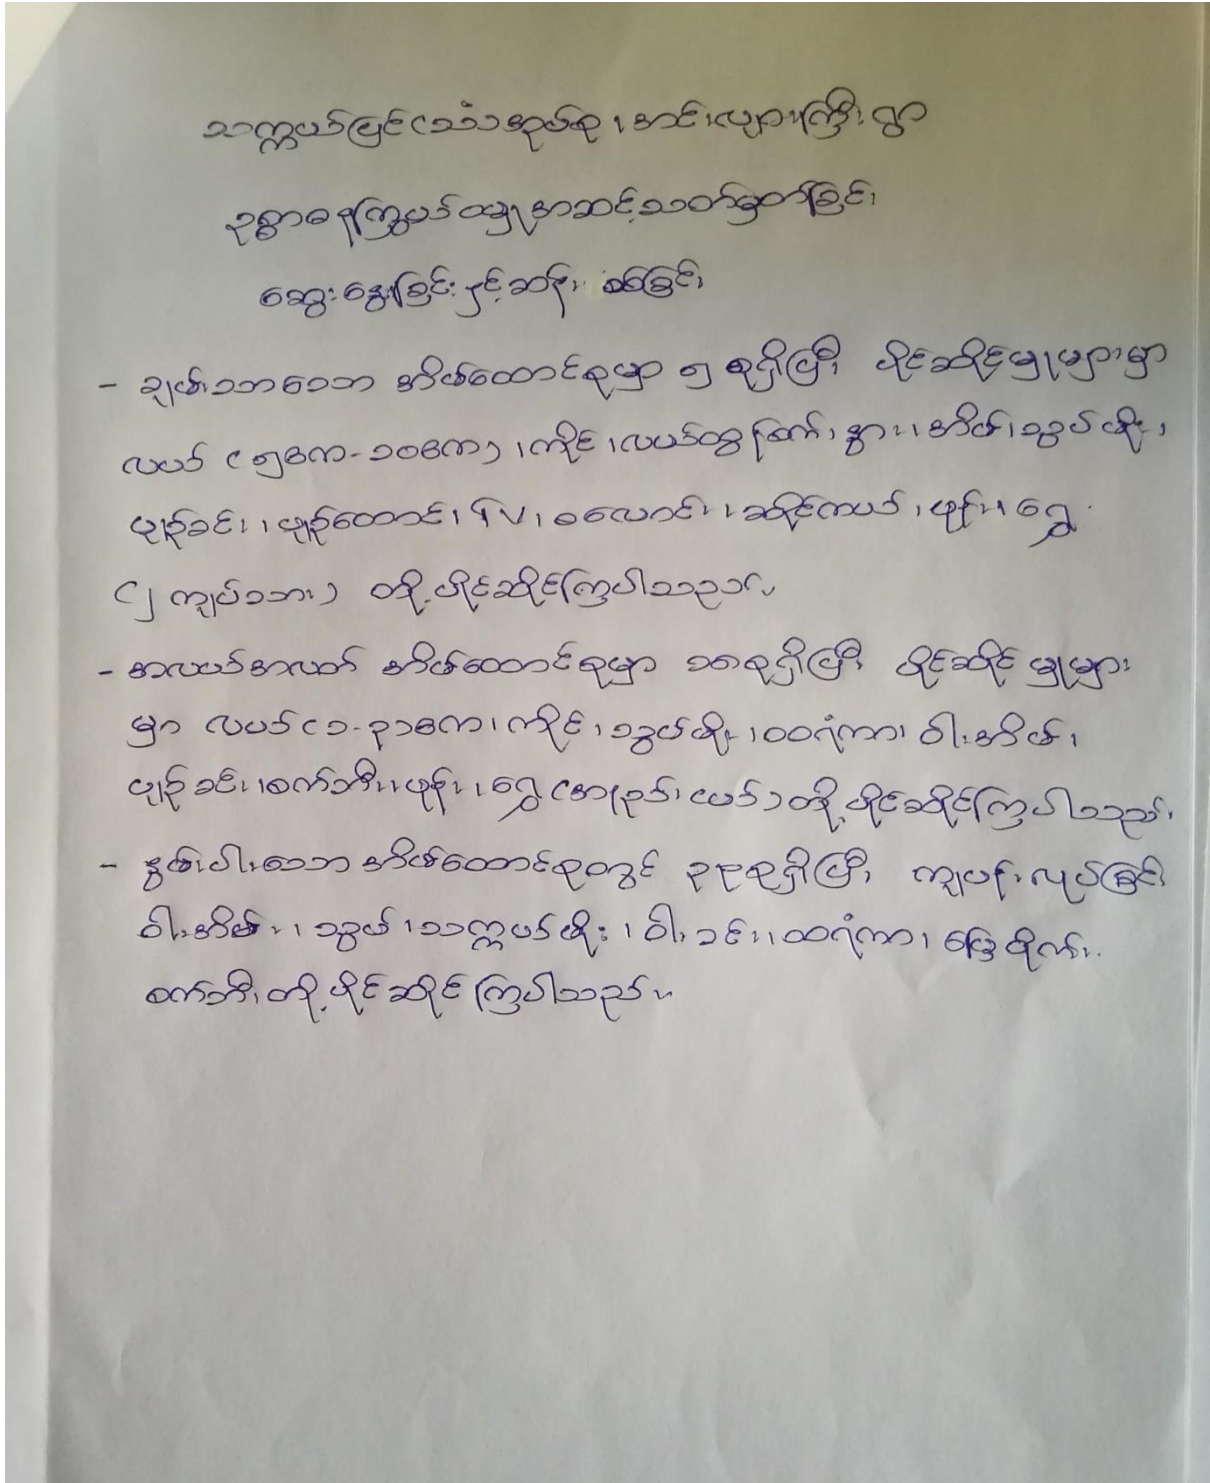 သက္ကယ်ပြင်ဒေသံအုပ်စု ၊ အင်းလျားကြီးရွာ
ဥစ္စာဓနကြွယ်ဝမှုအဆင့်သတ်မှတ်ခြင်း
ဆွေးနွေးခြင်းနှင့်ဆန်းစစ်ခြင်း
- ချမ်းသာသော အိမ်ထောင်စုမှာ ၅ စုရှိပြီး ပိုင်ဆိုင်မှုများမှာ
လယ် (၅ဧက-၁၀ဧက) ၊ ကိုင်း ၊ လယ်ထွန်စက် ၊ နွား ၊ အိမ် ၊ သွပ်မိုး ၊
ပျဉ်ခင်း ၊ ပျဉ်ထောင် ၊ TV ၊ စလောင်း ၊ ဆိုင်ကယ် ၊ ဖုန်း ၊ ရွှေ
(၂ ကျပ်သား) တို့ ပိုင်ဆိုင်ကြပါသည်။
- အလယ်အလတ် အိမ်ထောင်စုမှာ ၁၈စုရှိပြီး ပိုင်ဆိုင်မှုများ
မှာ လယ် (၁-၃)ဧက ၊ ကိုင်း ၊ သွပ်မိုး ၊ ထရံကာ ၊ ဝါးအိမ် ၊
ပျဉ်ခင်း ၊ စက်ဘီး ၊ ဖုန်း ၊ ရွှေ (အနည်းငယ်) တို့ ပိုင်ဆိုင်ကြပါသည်။
- နွမ်းပါးသော အိမ်ထောင်စုတွင် ၃၉စုရှိပြီး ကျပန်းလုပ်ခြင်း
ဝါးအိမ် ၊ သွပ် ၊ သက္ကယ်မိုး ၊ ဝါးခင်း ၊ ထရံကာ ၊ မြေစိုက် ၊
စက်ဘီး တို့ ပိုင်ဆိုင်ကြပါသည်။